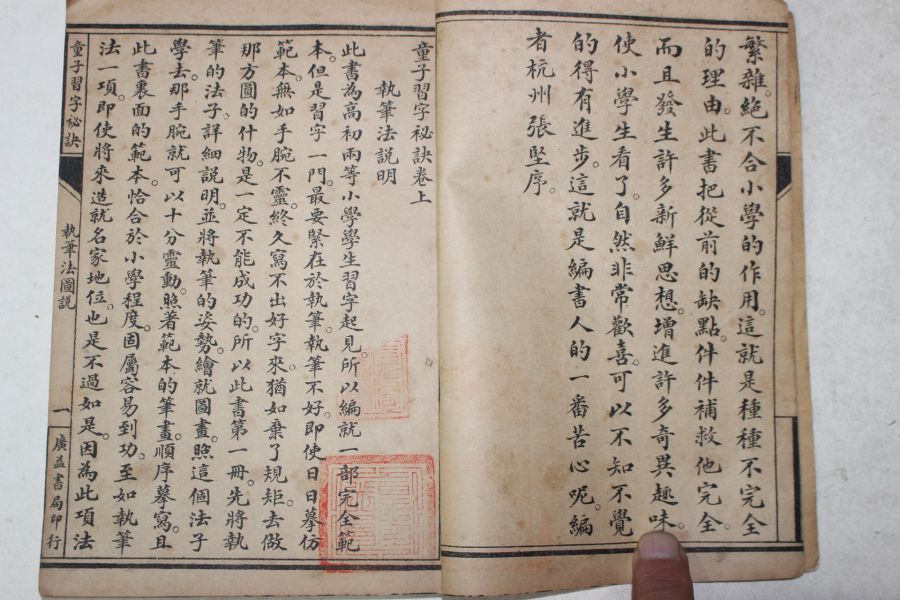 繁雜。絕不合小學的作用。這就是種種不完全
的理由。此書把從前的缺點。件件補救他完全
而且發生許多新鮮思想。增進許多奇異趣味。
使小學生看了。自然非常歡喜。可以不知不覺
的得有進步。這就是編書人的一番苦心呢。編
者杭州張堅序。
童子習字秘訣卷上
執筆法說明
此書為高初兩等小學學生習字起見。所以編就一部完全範
本。但是習字一門。最要緊在於執筆。執筆不好。即使日日摹仿
範本。無如手腕不靈。終久寫不出好字來。猶如棄了規矩。去做
那方圓的什物。是一定不能成功的。所以此書第一冊。先將執
筆的法子。詳細說明。並將執筆的姿勢。繪就圖畫。照這個法子
學去。那手腕就可以十分靈動。照著範本的筆畫。順序摹寫。且
此書裏面的範本。恰合於小學程度。固屬容易到功。至如執筆
法一項。即使將來造就名家地位。也是不過如是。因為此項法
童子習字秘訣
執筆法圖說
一
廣益書局印行